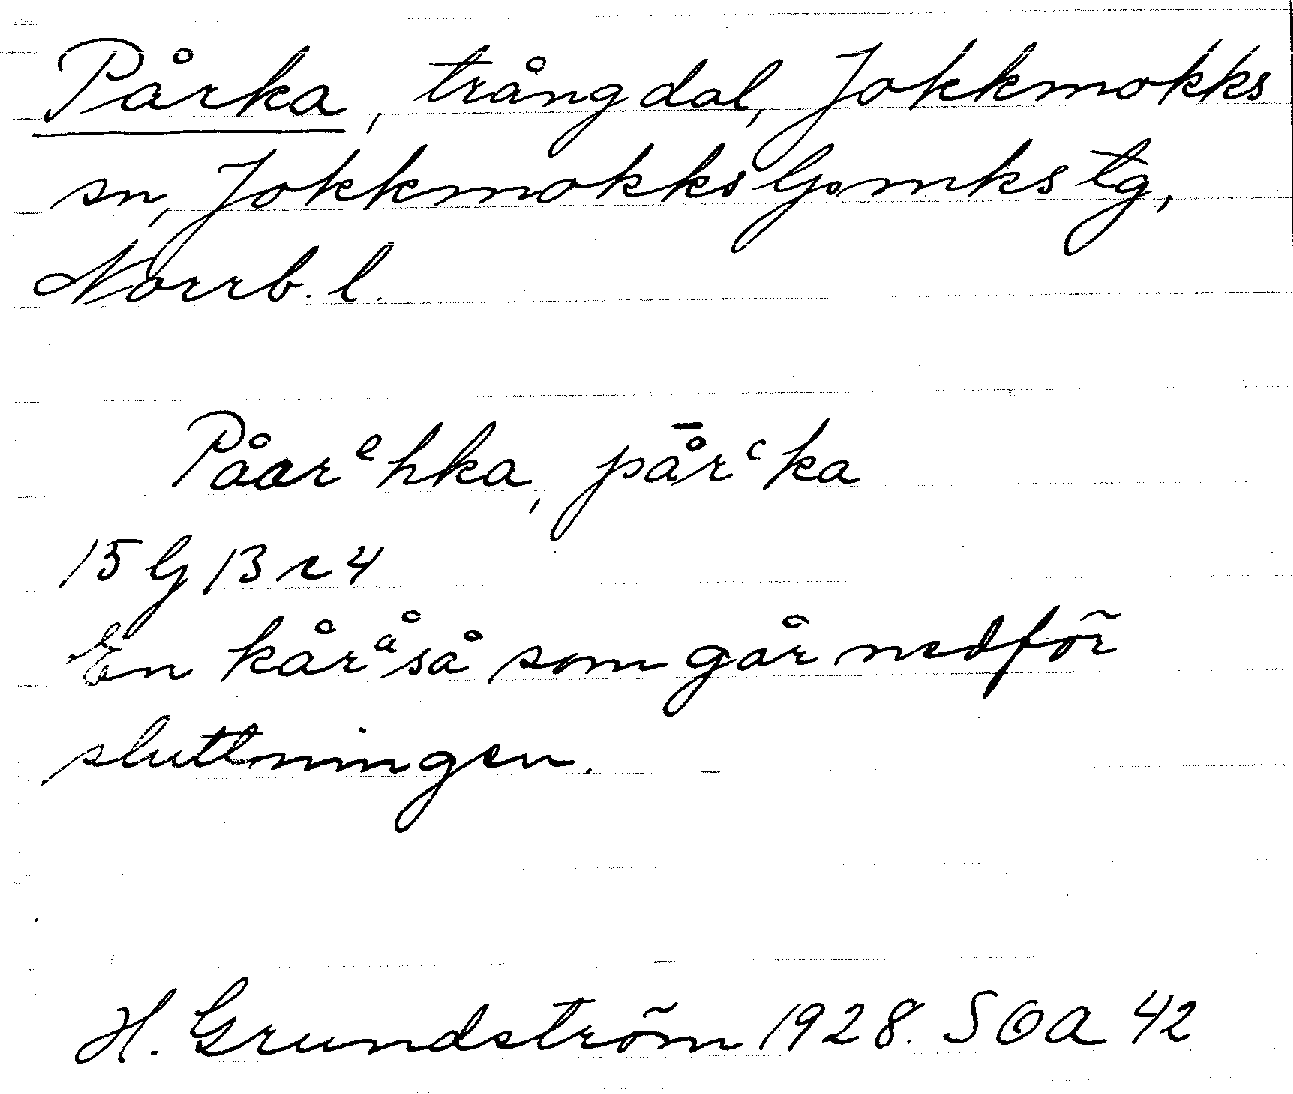 Pårka, trång dal, Jokkmokks
sn, Jokkmokks G:mks tg,
Norrb. l.
Påarᵉhka, på̄rᶜka
15 G 13 r 4
En kårᵃ̊så som går nedför
sluttningen.
H. Grundström 1928. SOA 42